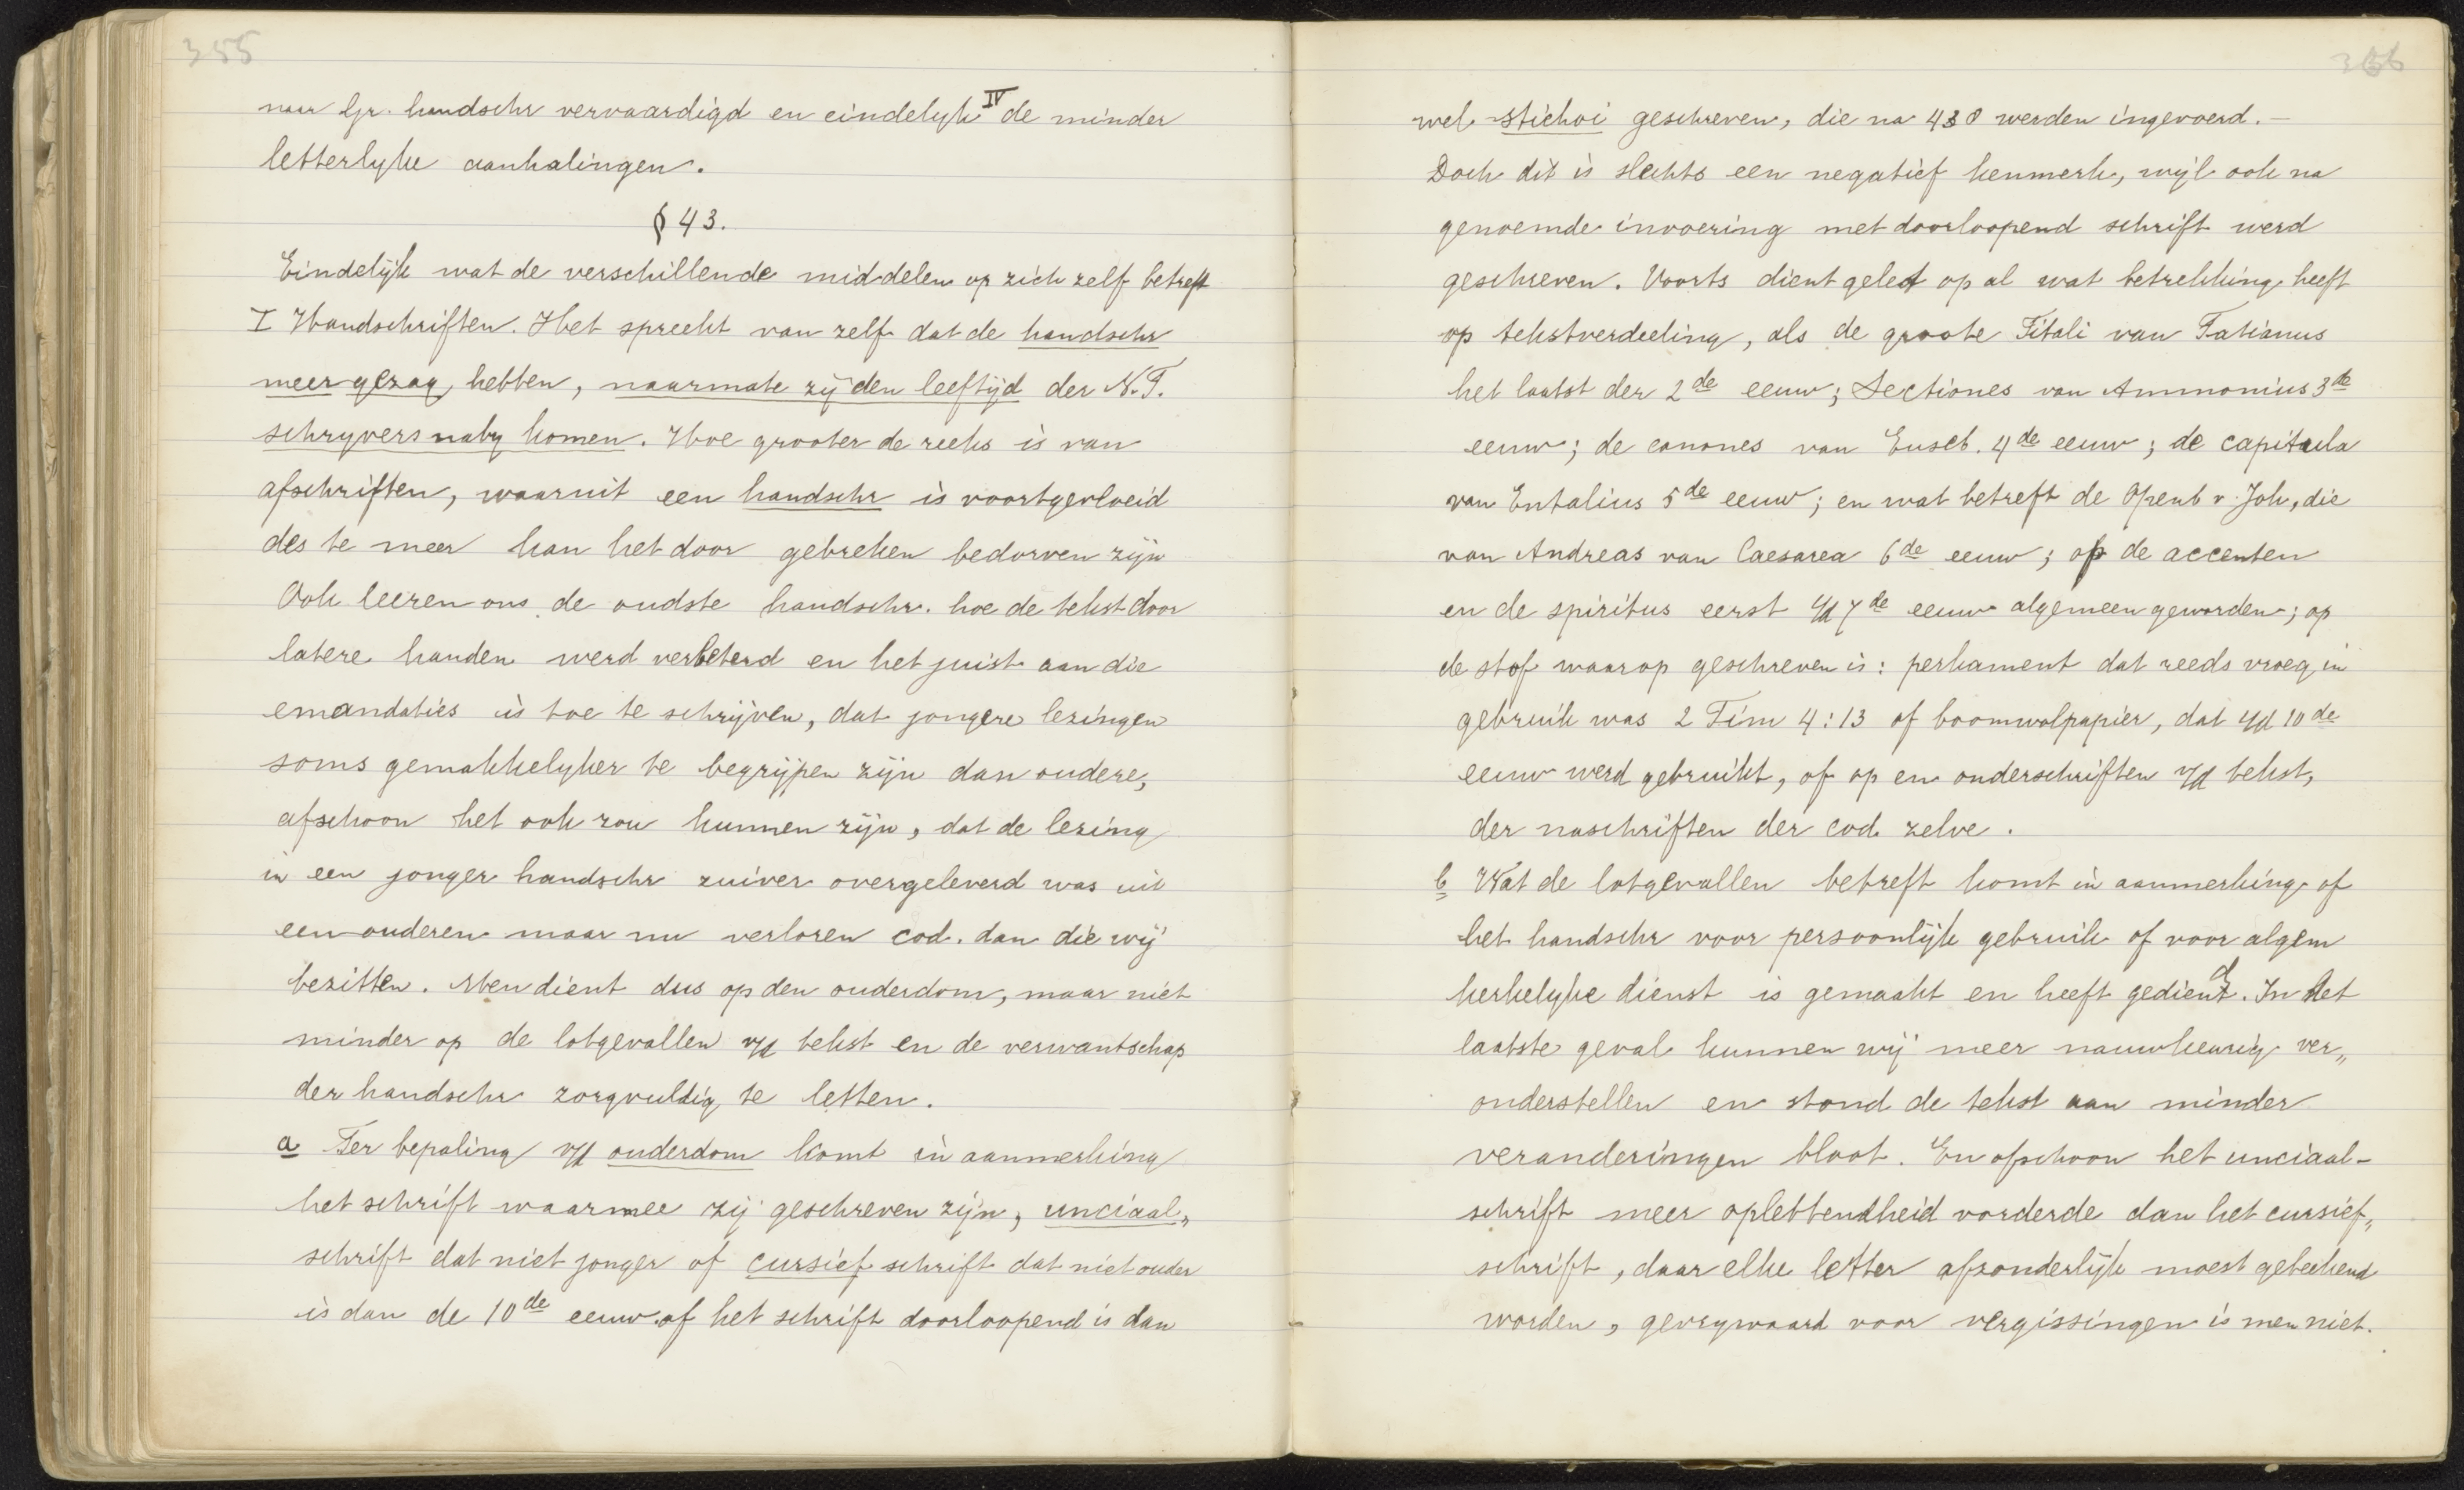 355
naar Gr. handschr vervaardigd en eindelyk IV de minder
letterlyke aanhalingen.
§ 43.
Eindelijk wat de verschillende middelen op zich zelf betreft
I Handschriften. Het spreekt van zelf dat de handschr
meer gezag hebben, naarmate zij den leeftijd der N.T.
schryvers naby komen. Hoe grooter de reeks is van
afschriften, waaruit een handschr is voortgevloeid
des te meer kan het door gebreken bedorven zijn
Ook leeren ons de oudste handschr. hoe de tekst door
latere handen werd verbeterd en het juist aan die
emandaties is toe te schrijven, dat jongere lezingen
soms gemakkelyker te begrijpen zijn dan oudere,
ofschoon het ook zou kunnen zijn, dat de lezing
in een jonger handschr zuiver overgeleverd was uit
een ouderen maar nu verloren cod. dan die wij
bezitten. Men dient dus op den ouderdom, maar niet
minder op de lotgevallen v/d tekst en de verwantschap
der handschr zorgvuldig te letten.
a Ter bepaling v/d ouderdom komt in aanmerking
het schrift waarmee zij geschreven zijn, unciaal„
schrift dat niet jonger of cursief schrift dat niet ouder
is dan de 10de eeuw. of het schrift doorloopend is dan
366
wel stichoi geschreven, die na 430 werden ingevoerd. —
Doch dit is slechts een negatief kenmerk, wijl ook na
genoemde invoering met doorloopend schrift werd
geschreven. Voorts dient gelet op al wat betrekking heeft
op tekstverdeeling, als de groote Titali van Tatianus
het laatst der 2de eeuw; Sectiones van Ammonius 3de
eeuw; de canones van Euseb. 4de eeuw; de capitula
van Entalius 5de eeuw; en wat betreft de Openb v. Joh, die
van Andreas van Caesarea 6de eeuw; op de accenten
en de spiritus eerst i/d 7de eeuw algemeen geworden; op
de stof waarop geschreven is: perkament dat reeds vroeg in
gebruik was 2 Tim 4:13 of boomwolpapier, dat i/d 10de
eeuw werd gebruikt, of op en onderschriften v/d tekst,
der naschriften der cod. zelve.
b Wat de lotgevallen betreft komt in aanmerking of
het handschr voor persoonlijk gebruik of voor algem
kerkelyke dienst is gemaakt en heeft gediend. In het
laatste geval kunnen wij meer nauwkeurig ver„
onderstellen en stond de tekst aan minder
veranderingen bloot. En ofschoon het unciaal-
schrift meer oplettendheid vorderde dan het cursief„
schrift, daar elke letter afzonderlijk moest geteekend
worden, gevrywaard voor vergissingen is men niet.